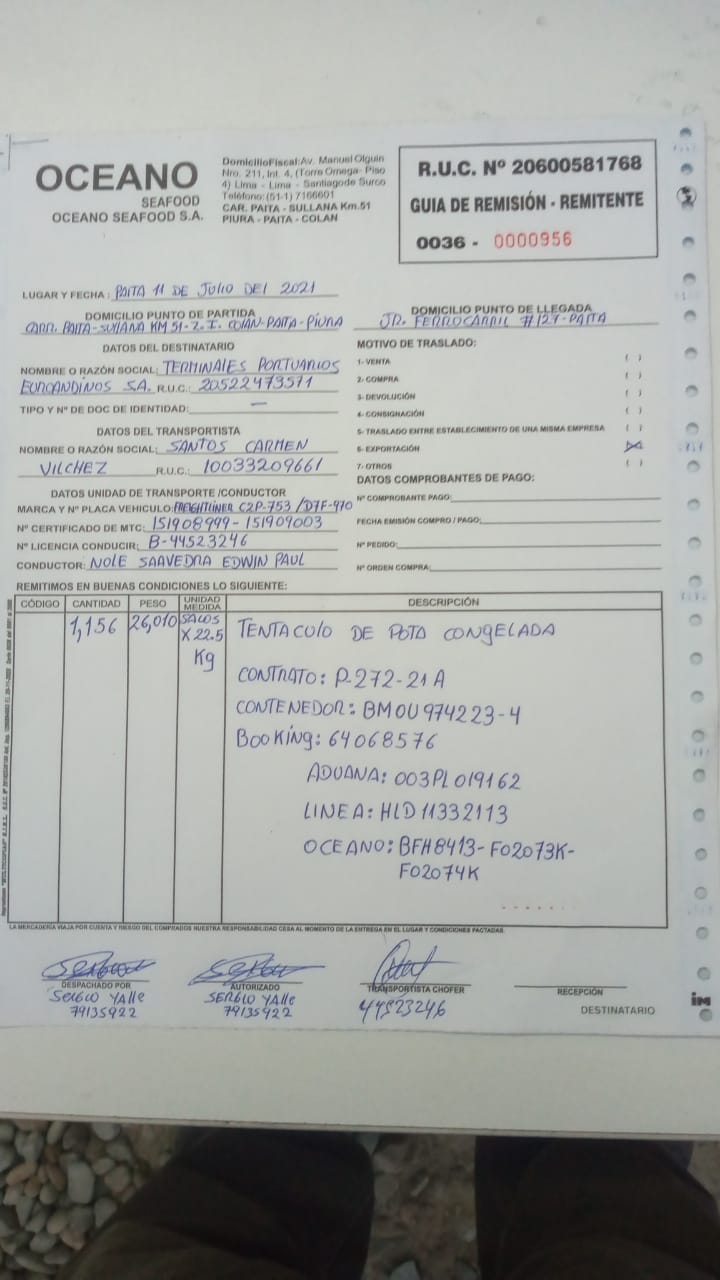 OCEANO
SEAFOOD
OCEANO SEAFOOD S.A.
DomicilioFiscal:Av. Manuel Olguin
Nro. 211, Int. 4, (Torre Omega- Piso
4) Lima - Lima - Santiagode Surco
Teléfono:(51-1) 7166601
CAR. PAITA - SULLANA Km.51
PIURA - PAITA - COLAN
R.U.C. Nº 20600581768
GUIA DE REMISIÓN - REMITENTE
0036 - 0000956
LUGAR Y FECHA : PAITA 11 DE JULIO DEL 2021
DOMICILIO PUNTO DE PARTIDA
CARR. PAITA-SULLANA KM 51-Z.I. COLAN-PAITA-PIURA
DOMICILIO PUNTO DE LLEGADA
JR. FERROCARRIL #127-PAITA
DATOS DEL DESTINATARIO
NOMBRE O RAZÓN SOCIAL: TERMINALES PORTUARIOS
EUROANDINOS S.A. R.U.C.: 20522473571
TIPO Y Nº DE DOC DE IDENTIDAD: —
DATOS DEL TRANSPORTISTA
NOMBRE O RAZÓN SOCIAL: SANTOS CARMEN
VILCHEZ R.U.C.: 10033209661
DATOS UNIDAD DE TRANSPORTE /CONDUCTOR
MARCA Y Nº PLACA VEHICULO: FREIGHTLINER C2P-753 /D7F-970
Nº CERTIFICADO DE MTC: 151908999-151909003
Nº LICENCIA CONDUCIR: B-44523246
CONDUCTOR: NOLE SAAVEDRA EDWIN PAUL
MOTIVO DE TRASLADO:
1- VENTA ( )
2- COMPRA ( )
3- DEVOLUCIÓN ( )
4- CONSIGNACIÓN ( )
5- TRASLADO ENTRE ESTABLECIMIENTO DE UNA MISMA EMPRESA ( )
6- EXPORTACIÓN (X)
7- OTROS ( )
DATOS COMPROBANTES DE PAGO:
Nº COMPROBANTE PAGO:
FECHA EMISIÓN COMPRO / PAGO:
Nº PEDIDO:
Nº ORDEN COMPRA:
REMITIMOS EN BUENAS CONDICIONES LO SIGUIENTE:
CÓDIGO CANTIDAD PESO UNIDAD MEDIDA DESCRIPCIÓN
1,156 26,010 SACOS X 22.5 Kg TENTACULO DE POTA CONGELADA
CONTRATO: P-272-21A
CONTENEDOR: BMOU974223-4
BOOKING: 64068576
ADUANA: 003PL019162
LINEA: HLD11332113
OCEANO: BFH8413-F02073K-
F02074K
LA MERCADERÍA VIAJA POR CUENTA Y RIESGO DEL COMPRADOS NUESTRA RESPONSABILIDAD CESA AL MOMENTO DE LA ENTREGA EN EL LUGAR Y CONDICIONES PACTADAS.
DESPACHADO POR
SERGIO YALLE
79135922
AUTORIZADO
SERGIO YALLE
79135922
TRANSPORTISTA CHOFER
44523246
RECEPCIÓN
DESTINATARIO
im